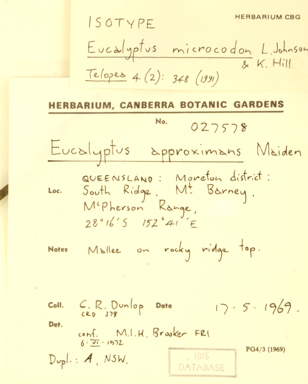 HERBARIUM CBG
ISOTYPE
Eucalyptus microcodon L. Johnson
& K. Hill
Telopea 4(2): 348 (1991)
HERBARIUM, CANBERRA BOTANIC GARDENS
No. 027578
Eucalyptus approximans Maiden
QUEENSLAND: Moreton district:
Loc. South Ridge, Mt. Barney,
McPherson Range,
28°16'S 152°41'E
Notes Mallee on rocky ridge top.
Coll. C. R. Dunlop Date 17.5.1969.
CRD 378
Det.
conf. M.I.H. Brooker FRI
6.VI.1972
PG4/3 (1969)
Dupl.: A, NSW.
IBIS
DATABASE